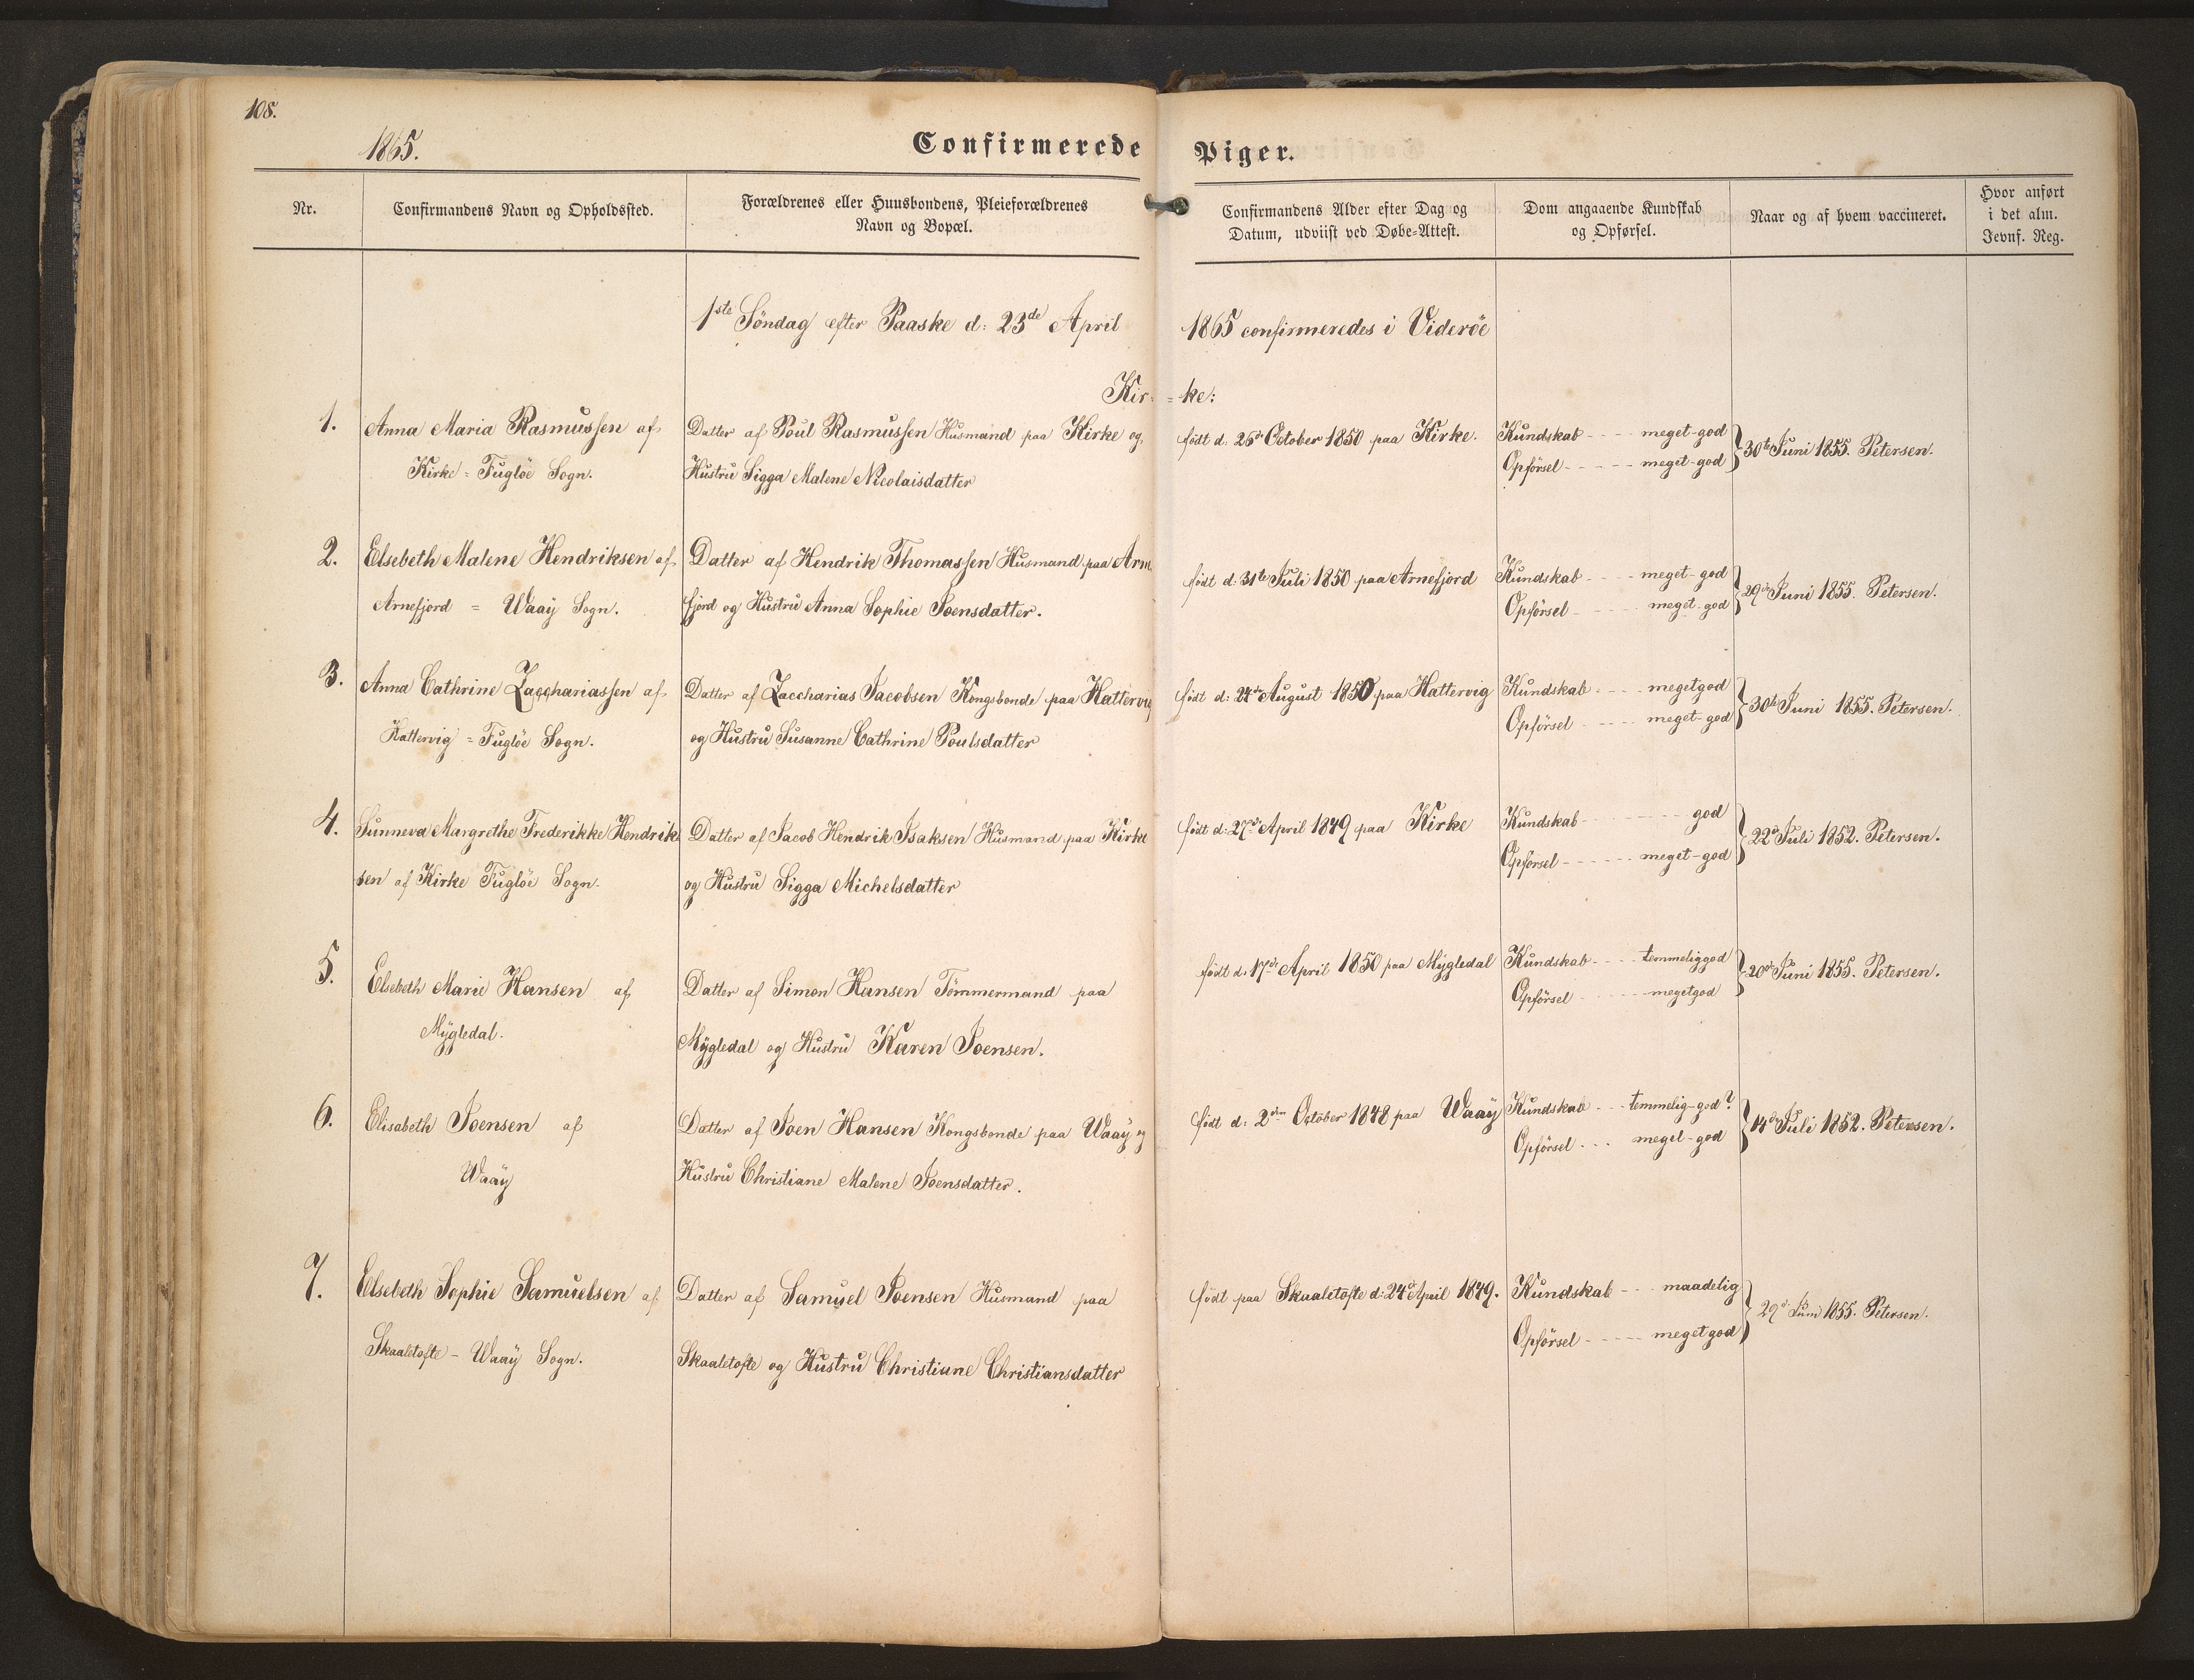 108.
1865.
Confirmerede Piger.
Nr.
Confirmandens Navn og Opholdssted.
Forældrenes eller Huusbondens, Pleieforældrenes
Navn og Bopæl.
Confirmandens Alder efter Dag og
Datum, udviist ved Døbe=Attest.
Dom angaaende Kundskab
og Opførsel.
Naar og af hvem vaccineret.
Hvor anført
i det alm.
Jevnf. Reg.
1ste Söndag efter Paaske d: 23de April 1865 confirmeredes i Viderøe
Kir- = ke:
1.
Anna Maria Rasmussen af
Kirke = Fugløe Sogn.
Datter af Poul Rasmussen Husmand paa Kirke og
Hustru Sigga Malene Nicolaisdatter
födt d: 26de October 1850 paa Kirke.
Kundskab - - - - meget-god
Opförsel - - - - - meget-god
30te Juni 1855. Petersen.
2.
Elsebeth Malene Hendriksen af
Arnefjord = Waaÿ Sogn.
Datter af Hendrik Thomassen Husmand paa Arne
fjord og Hustru Anna Sophie Joensdatter.
födt d: 31te Juli 1850 paa Arnefjord
Kundskab - - - - meget-god
Opförsel - - - - - meget-god
29de Juni 1855. Petersen.
3.
Anna Cathrine Zacchariassen af
Hattervig = Fugløe Sogn.
Datter af Zaccharias Jacobsen Kongsbonde paa Hattervig
og Hustru Susanne Cathrine Poulsdatter
födt d: 24de August 1850 paa Hattervig
Kundskab - - - - megetgod
Opförsel - - - - - meget-god
30te Juni 1855. Petersen.
4.
Sunneva Margrethe Frederikke Hendrik
sen af Kirke Fugløe Sogn.
Datter af Jacob Hendrik Isaksen Husmand paa Kirke
og Hustru Sigga Michelsdatter
födt d: 27de April 1849 paa Kirke
Kundskab - - - - - - god
Opförsel - - - - - - meget-god
22de Juli 1852. Petersen.
5.
Elsebeth Marie Hansen af
Mÿgledal.
Datter af Simon Hansen Tömmermand paa
Mÿgledal og Hustru Karen Joensen.
födt d: 17de April 1850 paa Mÿgledal
Kundskab - - - - temmeliggod
Opförsel - - - - - megetgod
20de Juni 1855. Petersen.
6.
Elisabeth Joensen af
Waaÿ
Datter af Joen Hansen Kongsbonde paa Waaÿ og
Hustru Christiane Malene Joensdatter.
födt d: 2den October 1848 paa Waaÿ
Kundskab - - - temmelig-god?
Opförsel - - - meget-god
14de Juli 1852. Petersen.
7.
Elsebeth Sophie Samuelsen af
Skaaletofte - Waaÿ Sogn.
Datter af Samuel Joensen Husmand paa
Skaaletofte og Hustru Christiane Christiansdatter
födt paa Skaaletofte d: 24de April 1849.
Kundskab - - - maadelig
Opförsel - - - - - megetgod
29de Juni 1855. Petersen.